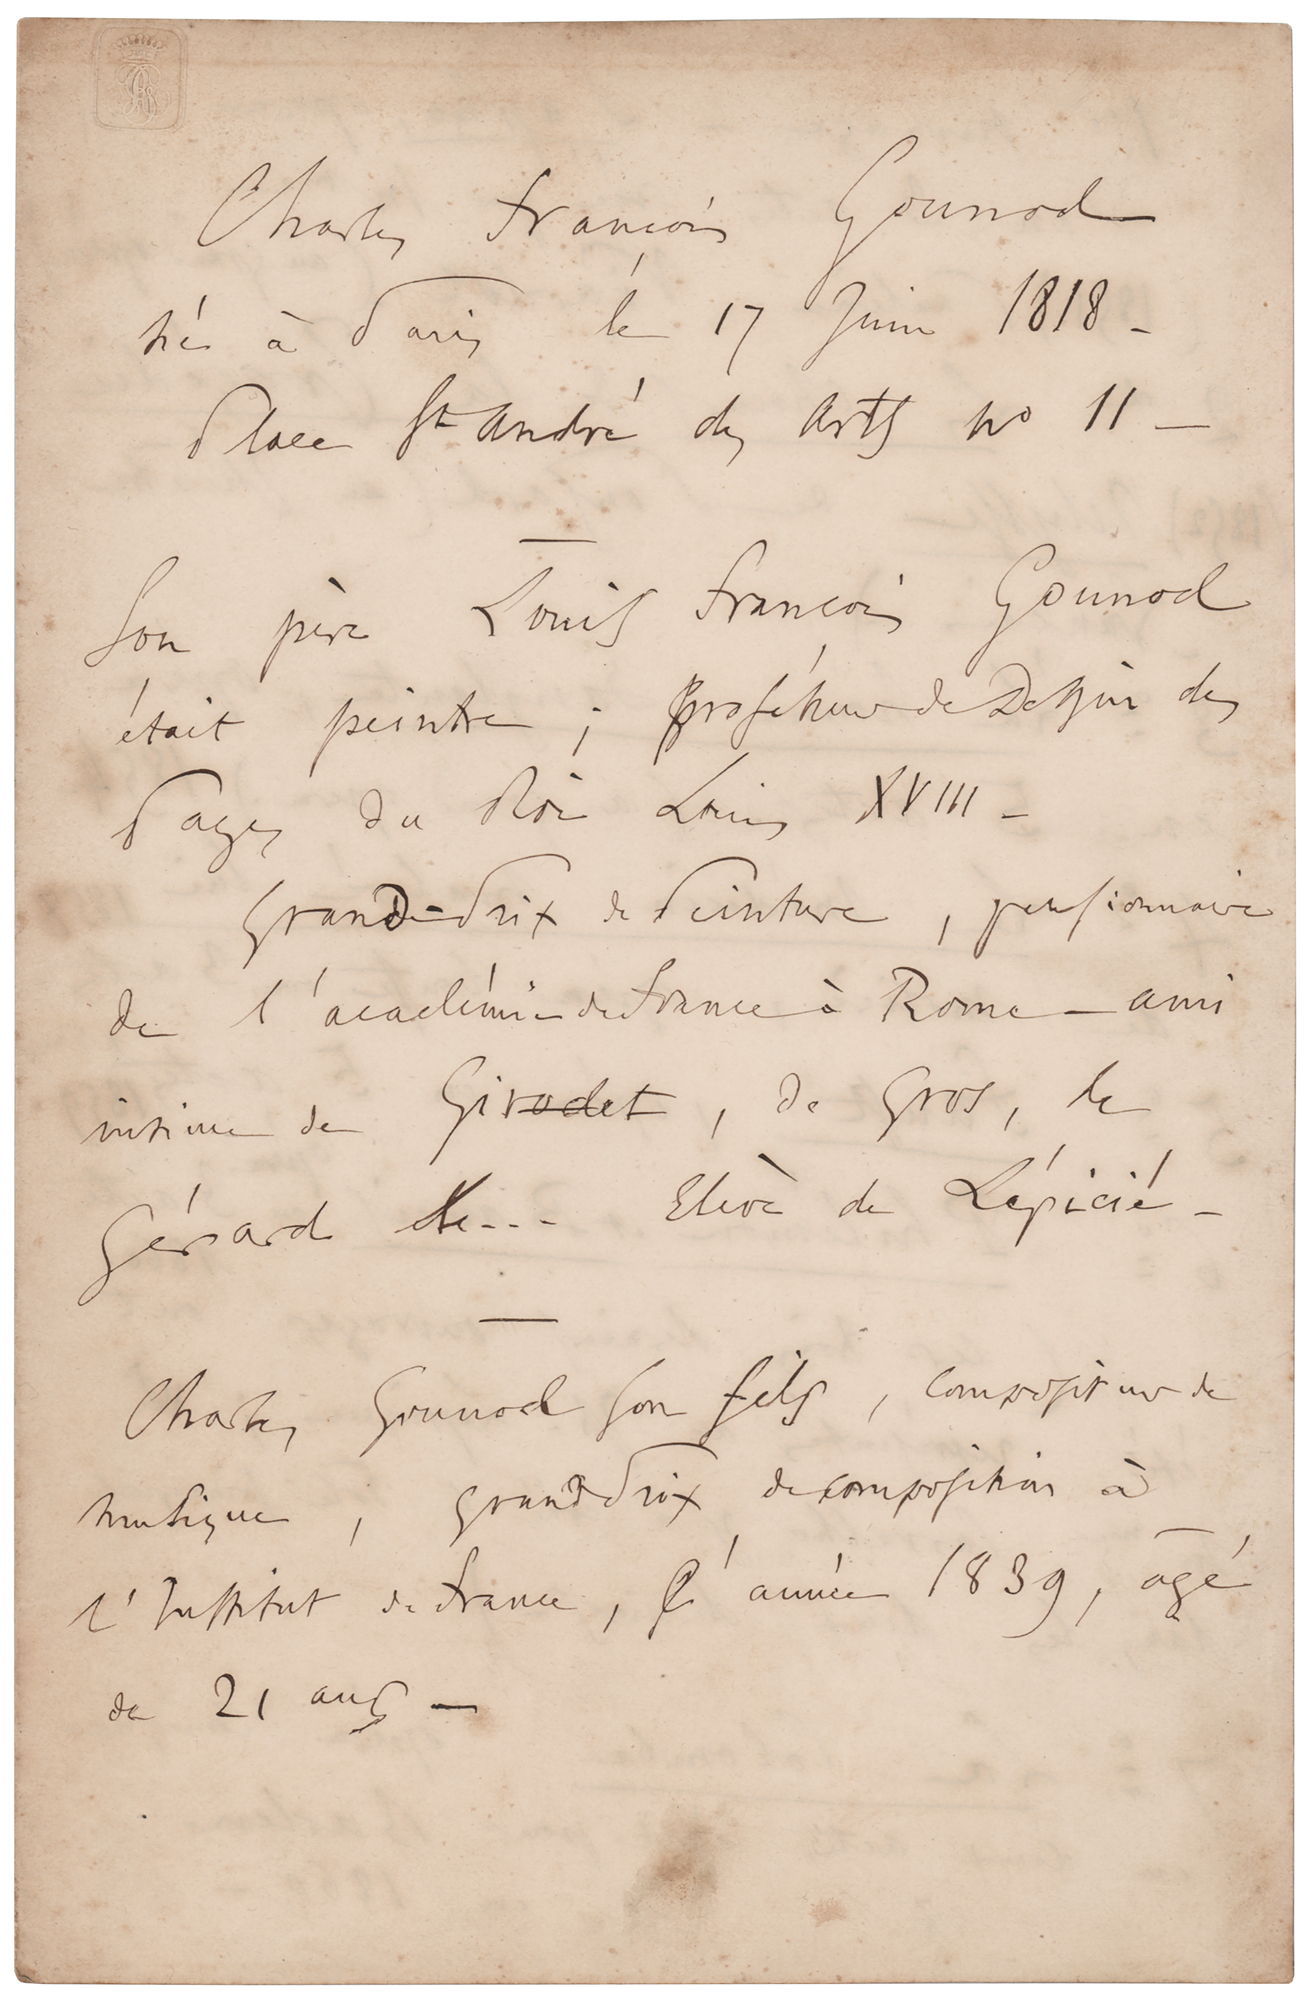 Charles François Gounod
né à Paris le 17 Juin 1818 -
Place St André des Arts no 11 -
Son père Louis François Gounod
était peintre ; professeur de Dessin des
Pages du Roi Louis XVIII -
Grand-Prix de Peinture , pensionnaire
de l'académie de France à Rome - ami
intime de Girodet , de Gros , de
Gérard &c... Elève de Lépicié -
Charles Gounod son fils , compositeur de
musique , grand Prix de composition à
l'Institut de France , l'année 1839 , âgé
de 21 ans -